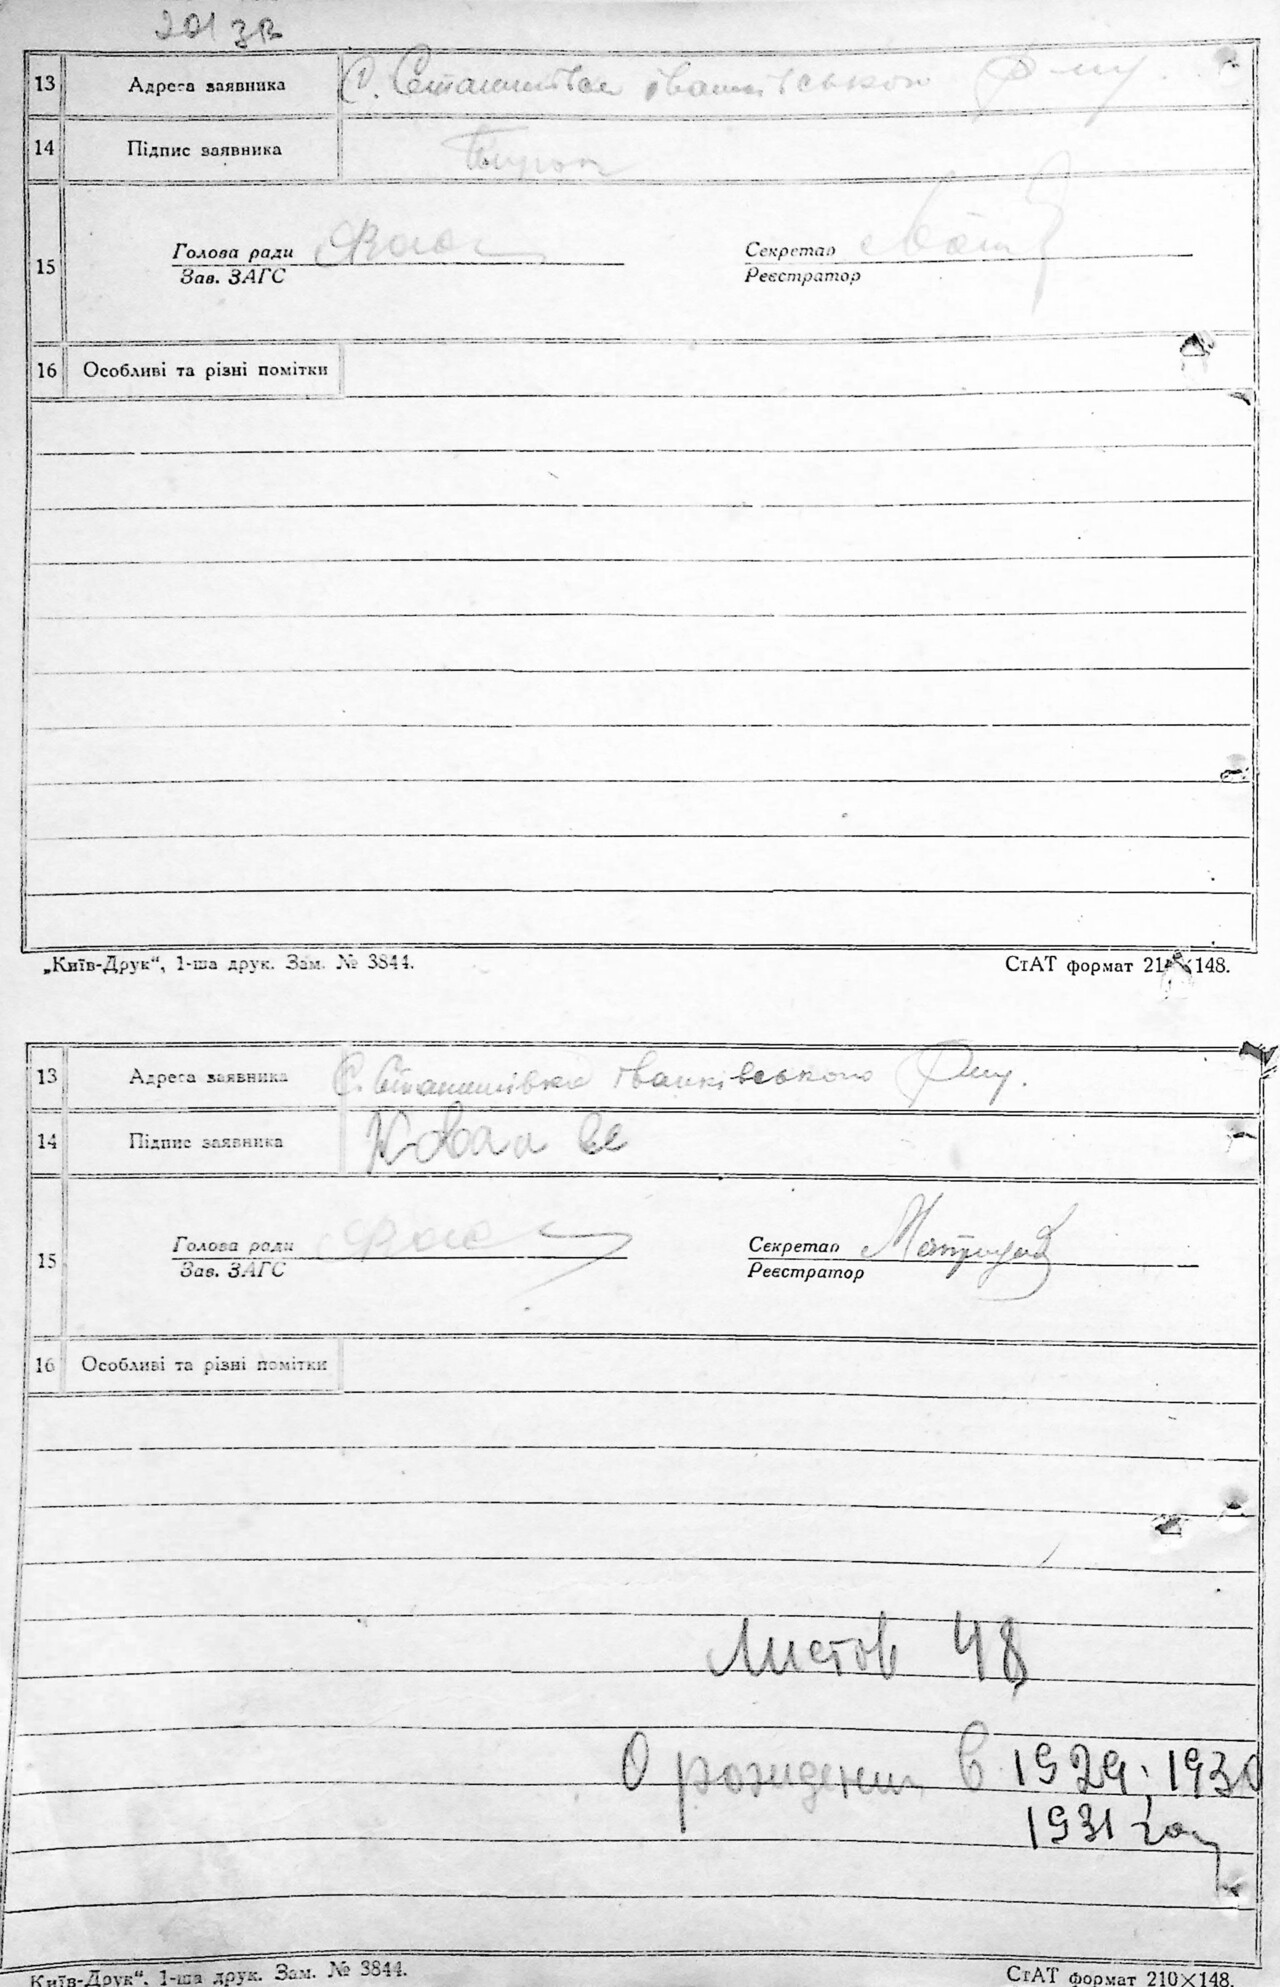 201 зв
13 Адреса заявника С. Станишівка Іванківського Р-ну.
14 Підпис заявника
15 Голова ради Секретар
Зав. ЗАГС Реєстратор
16 Особливі та різні помітки
„Київ-Друк“, 1-ша друк. Зам. № 3844. СтАТ формат 210×148.
13 Адреса заявника С. Станишівка Іванківського Р-ну.
14 Підпис заявника
15 Голова ради Секретар
Зав. ЗАГС Реєстратор
16 Особливі та різні помітки
Листов 48
О рождении в 1929, 1930
1931 году
Київ-Друк“, 1-ша друк. Зам. № 3844. СтАТ формат 210×148.